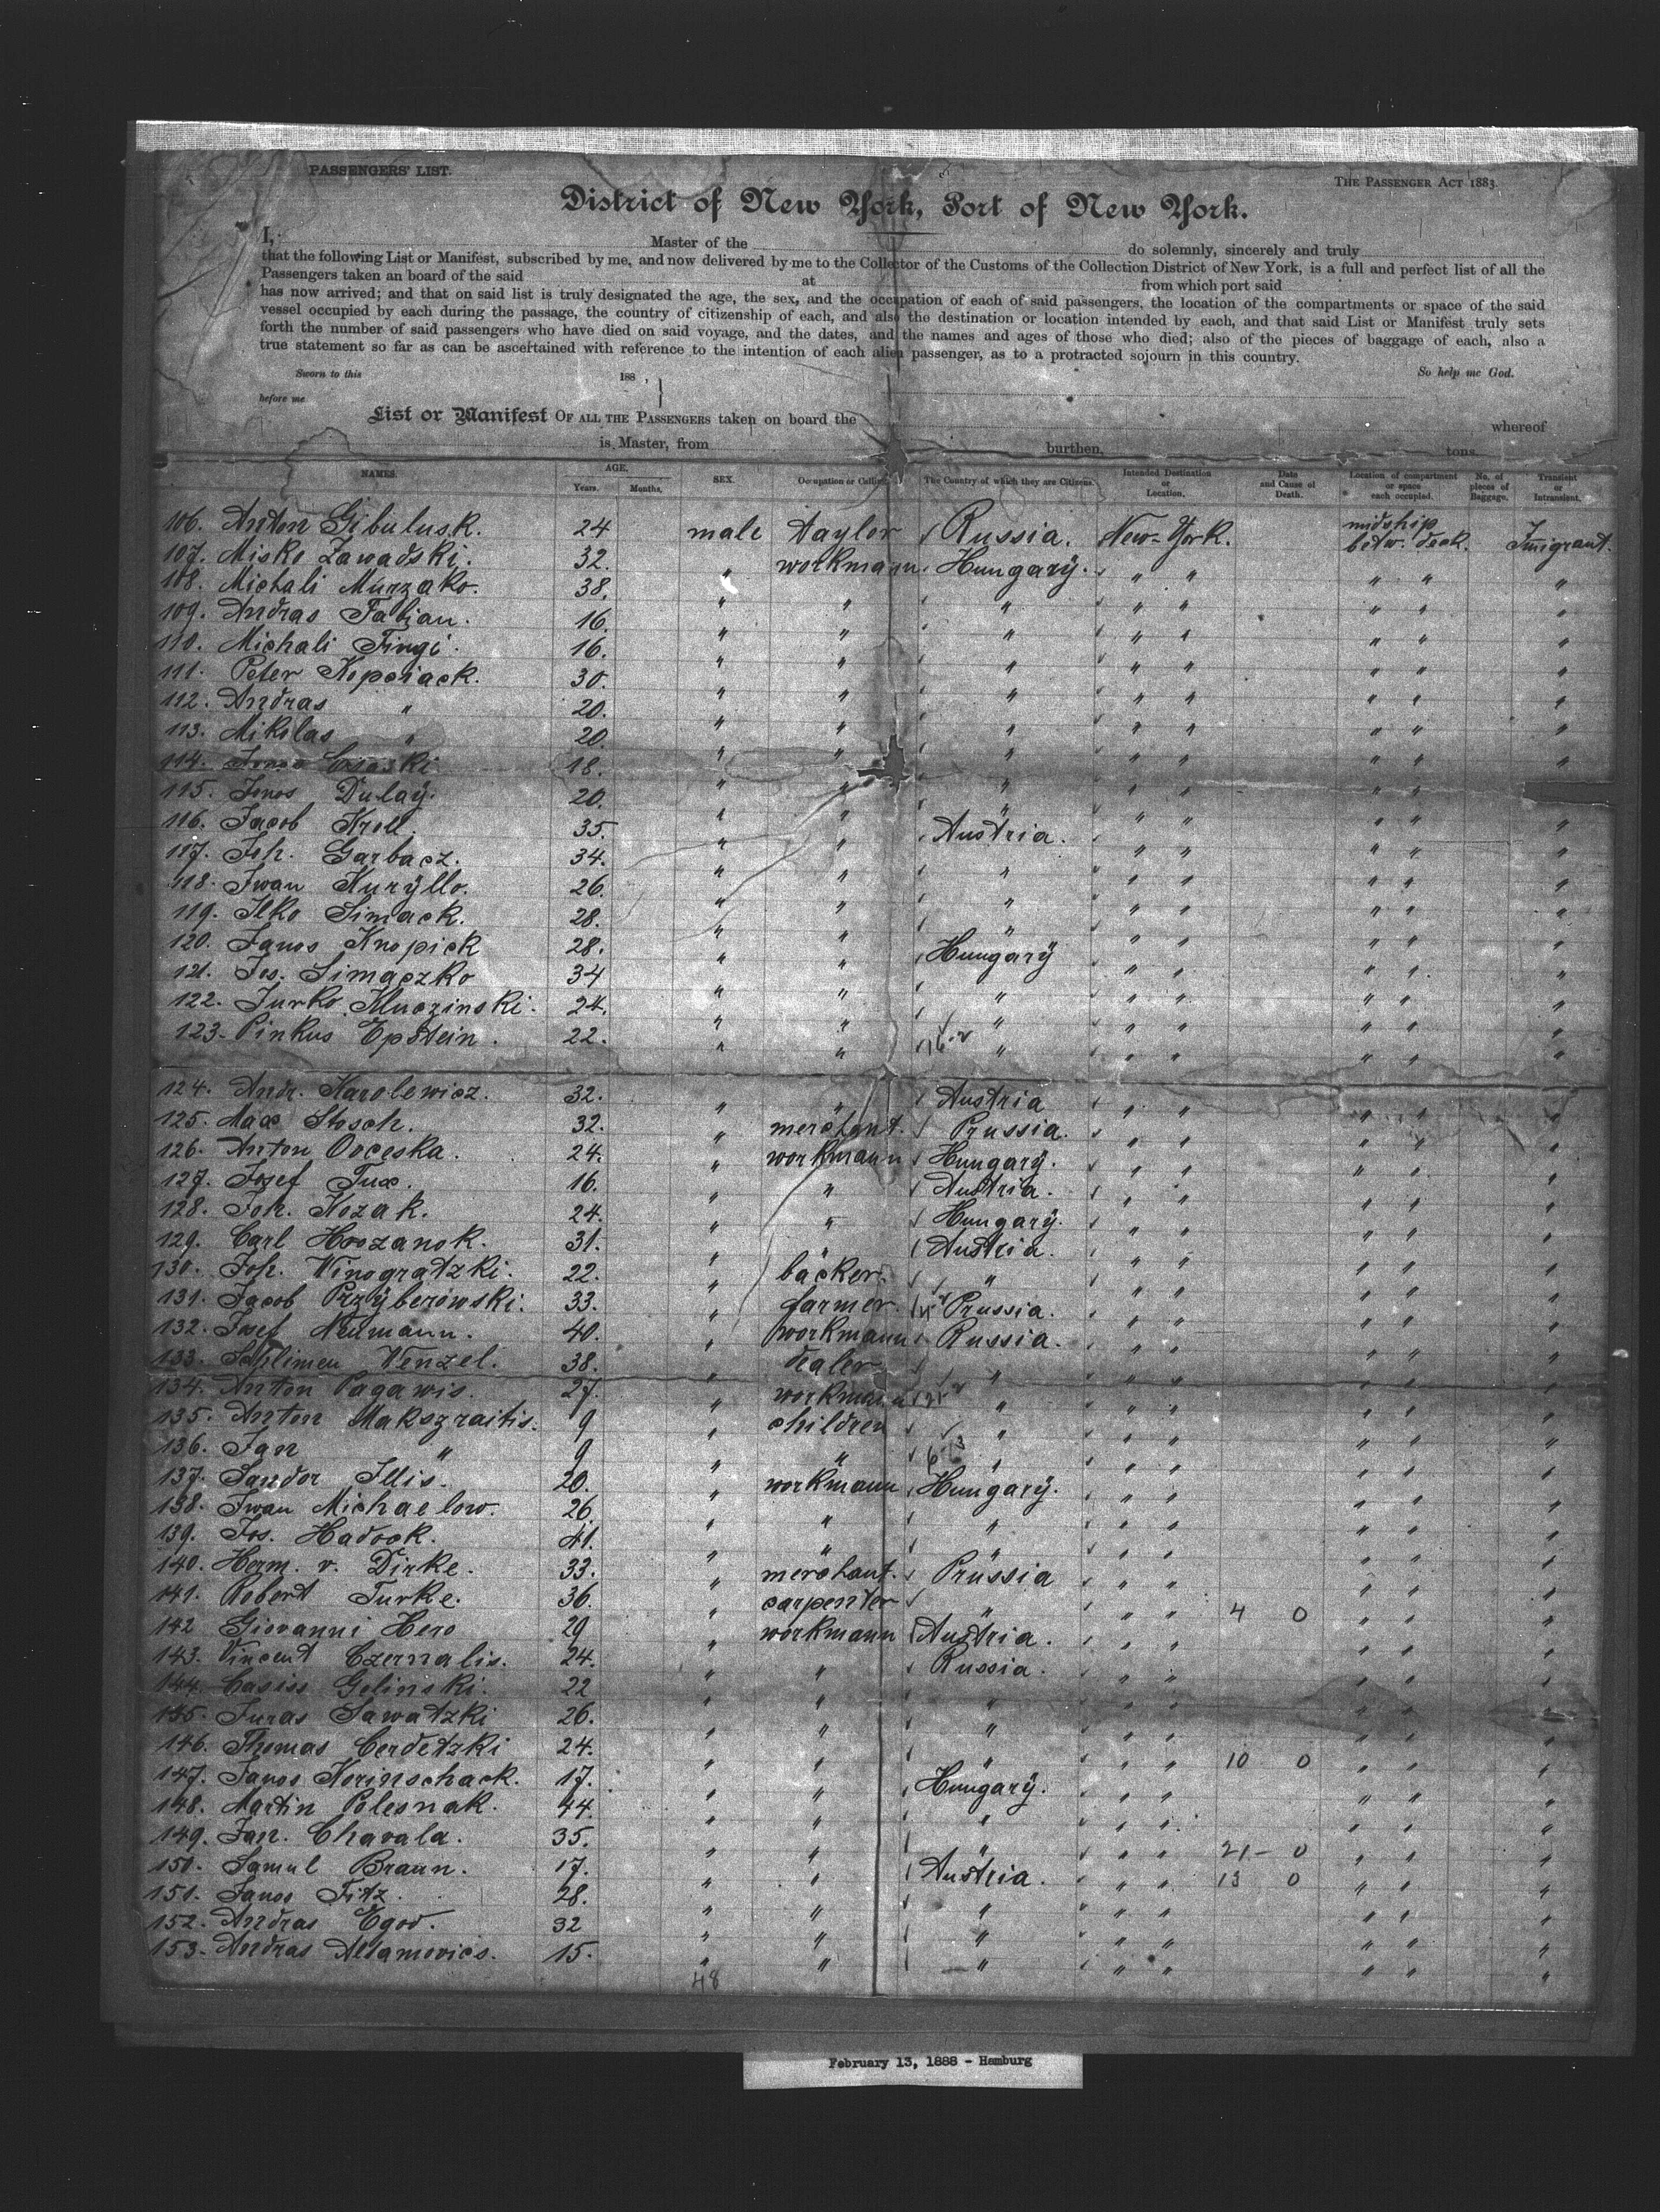 PASSENGERS' LIST.
THE PASSENGER ACT 1883.
District of New York, Port of New York.
I, Master of the do solemnly, sincerely and truly
that the following List or Manifest, subscribed by me, and now delivered by me to the Collector of the Customs of the Collection District of New York, is a full and perfect list of all the
Passengers taken an board of the said at from which port said
has now arrived; and that on said list is truly designated the age, the sex, and the occupation of each of said passengers, the location of the compartments or space of the said
vessel occupied by each during the passage, the country of citizenship of each, and also the destination or location intended by each, and that said List or Manifest truly sets
forth the number of said passengers who have died on said voyage, and the dates, and the names and ages of those who died; also of the pieces of baggage of each, also a
true statement so far as can be ascertained with reference to the intention of each alien passenger, as to a protracted sojourn in this country.
Sworn to this 188 , So help me God.
before me
List or Manifest OF ALL THE PASSENGERS taken on board the whereof
is Master, from burthen, tons.
NAMES. AGE. Years. Months. SEX. Occupation or Calling. The Country of which they are Citizens. Intended Destination or Location. Date and Cause of Death. Location of compartment or space each occupied. No. of pieces of Baggage. Transient or Intransient.
106. Anton Gibulusk. 24 male taylor Russia. New-York. midship betw. deck. Imigrant.
107. Misko Zawadski. 32. " workmann Hungary. " " " " "
108. Michali Murzako. 38. " " " " " " " "
109. Andras Fabian. 16. " " " " " " " "
110. Michali Fingi. 16. " " " " " " " "
111. Peter Kopciack. 30. " " " " " " " "
112. Andras " 20. " " " " " " " "
113. Mikolas " 20. " " " " " " " "
114. 18. " " " " " " " "
115. Janos Dulay. 20. " " " " " " " "
116. Jacob Kroll. 35. " " Austria. " " " " "
117. Joh. Garbacz. 34. " " " " " " " "
118. Iwan Kuryllo. 26. " " " " " " " "
119. Ilko Simack. 28. " " " " " " " "
120. Janos Knopick 28. " " Hungary " " " " "
121. Jos. Simaczko 34 " " " " " " " "
122. Jurko Kluczinski. 24. " " " " " " " "
123. Pinkus Epstein. 22. " " " " " " " "
124. Andr. Karolewicz. 32. " " Austria " " " " "
125. Max Stosch. 32. " merchant. Prussia. " " " " "
126. Anton Ovceska. 24. " workmann Hungary. " " " " "
127. Josef Tux. 16. " " Austria. " " " " "
128. Joh. Kozak. 24. " " Hungary. " " " " "
129. Carl Hoozanok. 31. " " Austria. " " " " "
130. Joh. Winogratzki. 22. " bäcker. " " " " " "
131. Jacob Przyberowski. 33. " farmer. Prussia. " " " " "
132. Josef Neumann. 40. " workmann Russia. " " " " "
133. Schlimen Wenzel. 38. " dealer " " " " " "
134. Anton Pagawis. 27. " workmann " " " " " "
135. Anton Makszraitis. 9 " children " " " " " "
136. Jan " 9 " " " " " " " "
137. Sandor Illis. 20. " workmann Hungary. " " " " "
138. Iwan Michaelow. 26. " " " " " " " "
139. Jos. Hadock. 41. " " " " " " " "
140. Herm. v. Dirke. 33. " merchant. Prussia " " " " "
141. Robert Turke. 36. " carpenter " " " 4 0 " " "
142 Giovanni Hero 29 " workmann Austria. " " " " "
143. Vincent Czernalis. 24. " " Russia. " " " " "
144. Casiss Gelinski. 22 " " " " " " " "
145. Juras Sawatzki 26. " " " " " " " "
146. Thomas Cerdetzki 24. " " " " " 10 0 " " "
147. Janos Korinschack. 17. " " Hungary. " " " " "
148. Martin Polesnak. 44. " " " " " " " "
149. Jan. Chavala. 35. " " " " " 21- 0 " " "
150. Samul Braun. 17. " " Austria. " " 13 0 " " "
151. Janos Fitz. 28. " " " " " " " "
152. Andras Egov. 32 " " " " " " " "
153. Andras Adamovics. 15. " " " " " " " "
48
February 13, 1888 - Hamburg